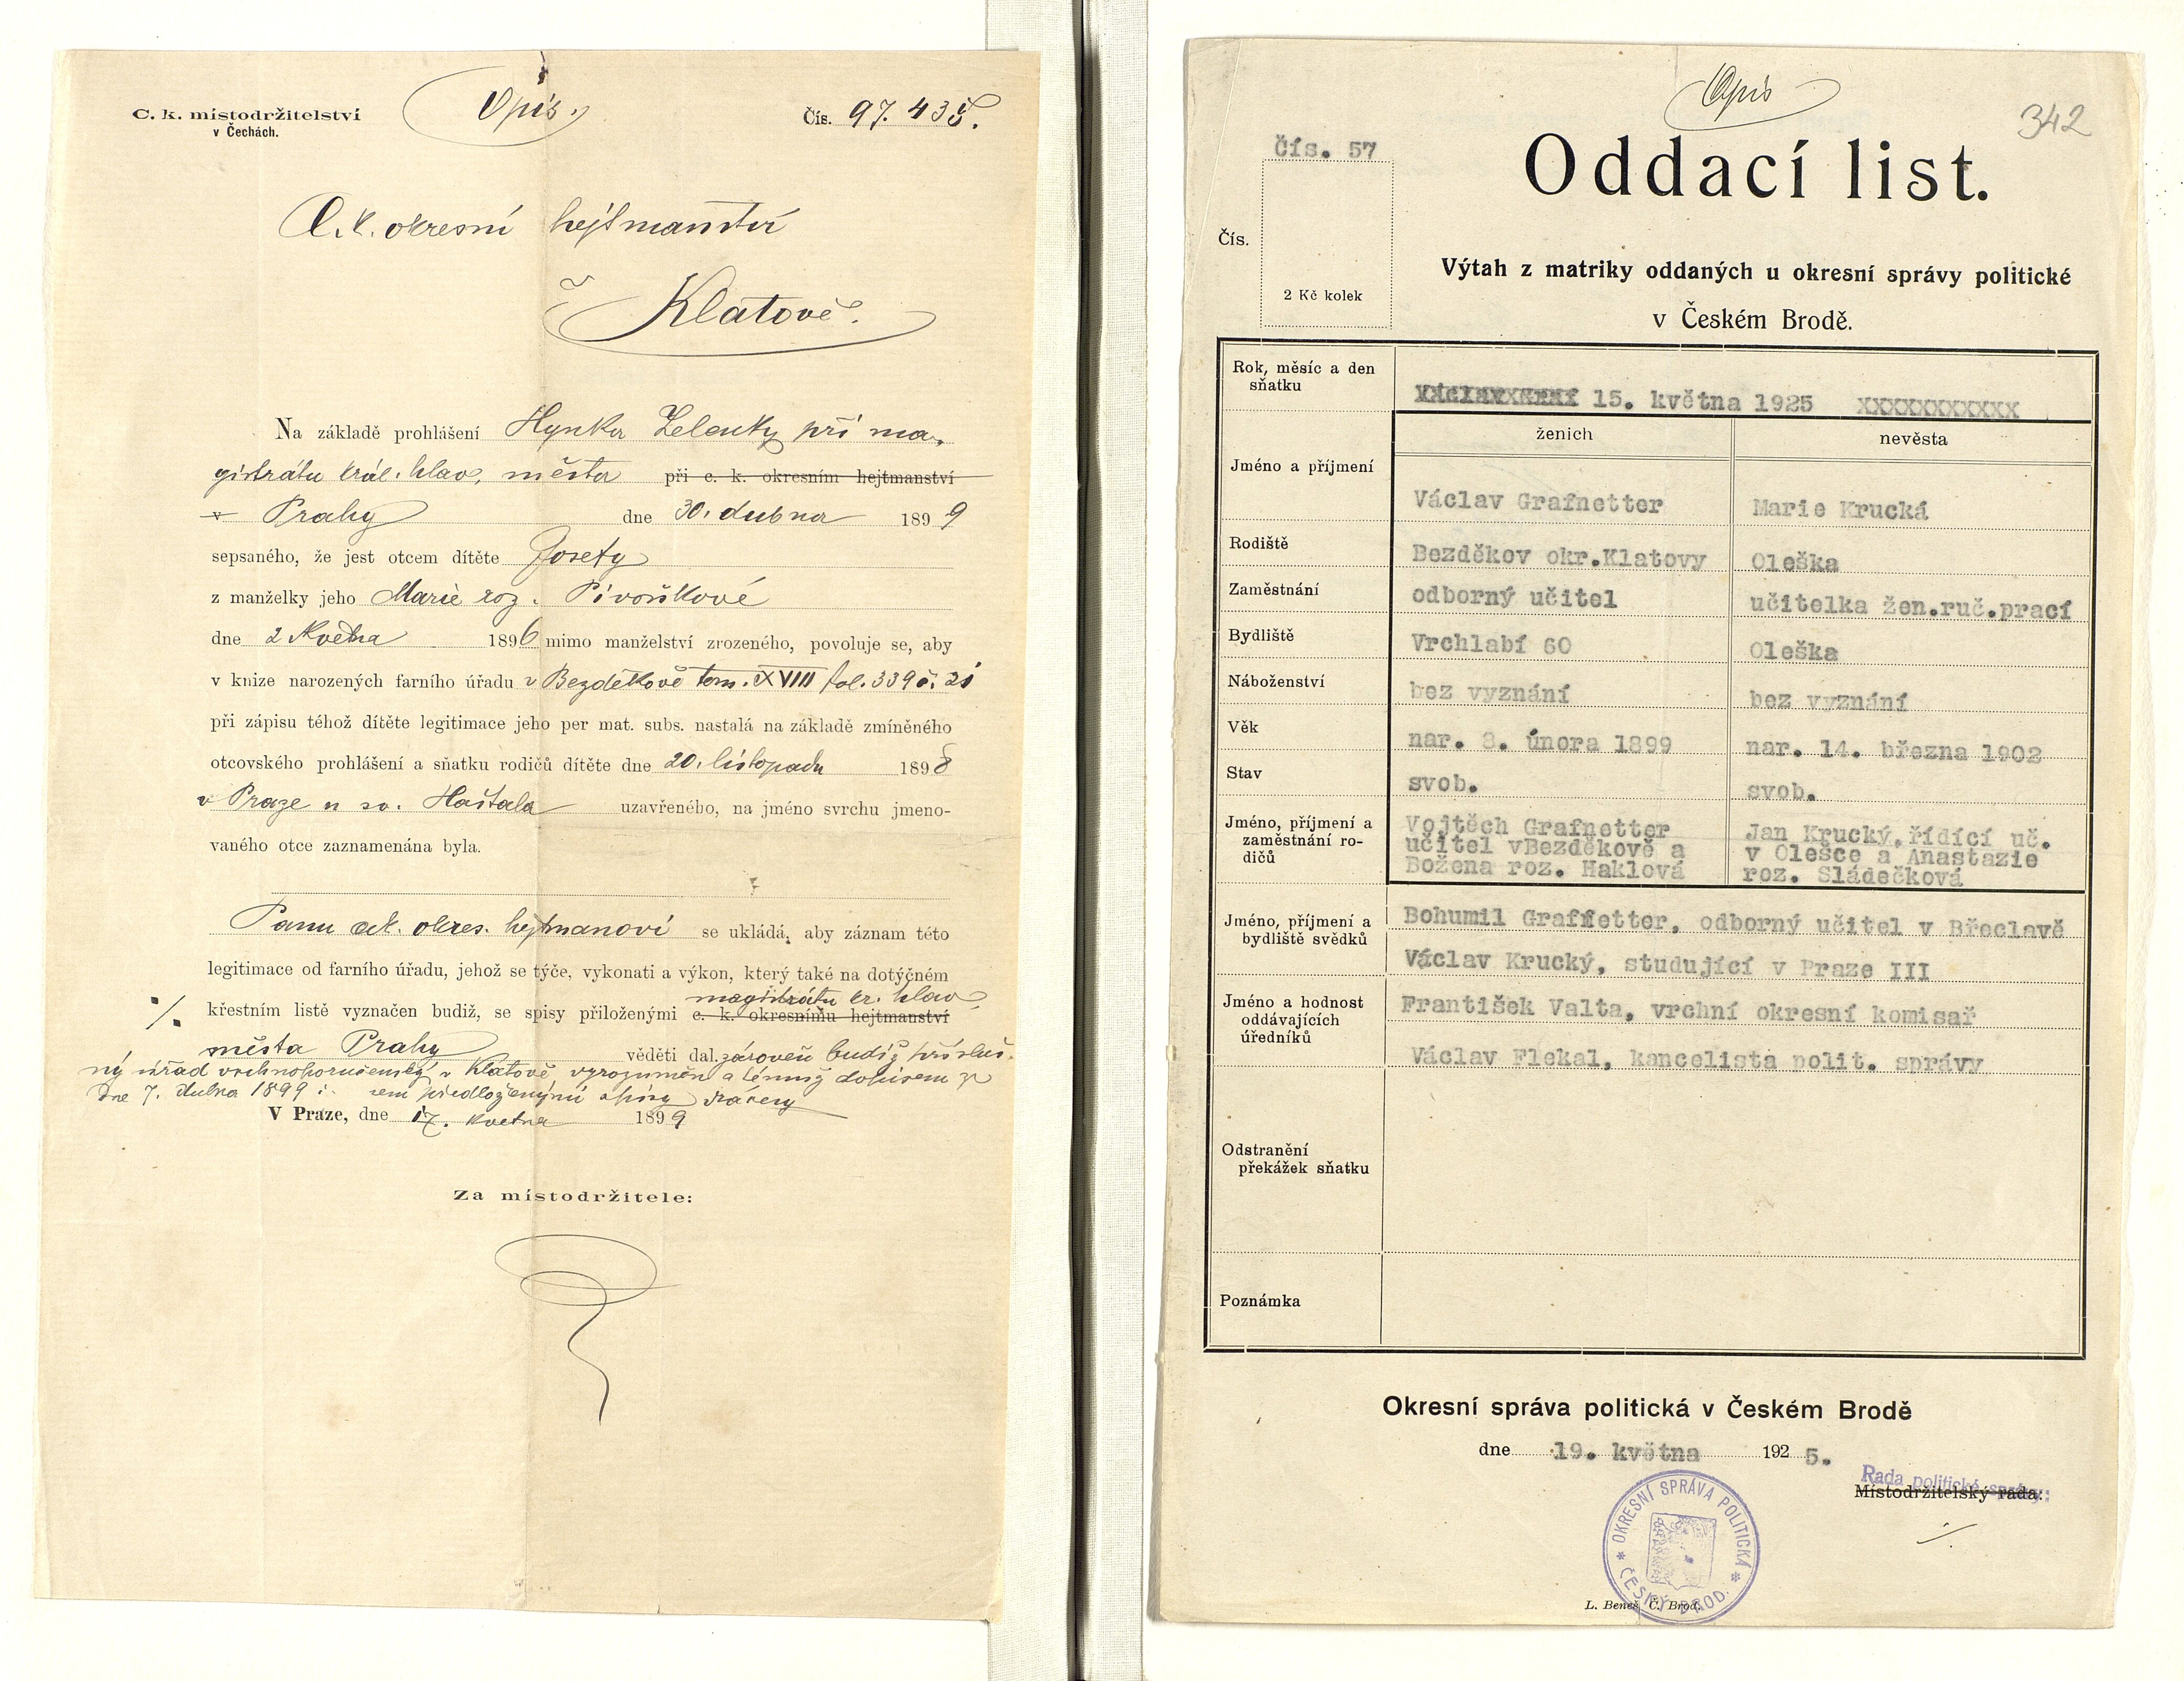 C. k. místodržitelství
v Čechách.
Opis.
Čís. 97.435.
C. k. okresní hejtmanství
v Klatově.
Na základě prohlášení Hynka Zelenky při ma-
gistrátu král. hlav. města při c. k. okresním hejtmanství
v Prahy dne 30. dubna 1899
sepsaného, že jest otcem dítěte Josefy
z manželky jeho Marie roz. Pivoňkové
dne 2 Května 1896 mimo manželství zrozeného, povoluje se, aby
v knize narozených farního úřadu v Bezděkově tom. XVIII fol. 339 č. 21
při zápisu téhož dítěte legitimace jeho per mat. subs. nastalá na základě zmíněného
otcovského prohlášení a sňatku rodičů dítěte dne 20. listopadu 1898
v Praze u sv. Haštala uzavřeného, na jméno svrchu jmeno-
vaného otce zaznamenána byla.
Panu c.k. okres. hejtmanovi se ukládá, aby záznam této
legitimace od farního úřadu, jehož se týče, vykonati a výkon, který také na dotýčném
magistrátu kr. hlav.
·/. křestním listě vyznačen budiž, se spisy přiloženými c. k. okresnímu hejtmanství
města Prahy věděti dal. zároveň budiž přísluš-
ný úřad v Klatově vyrozuměn a témuž dopisem ze
dne 7. dubna 1899 sem předloženými spisy
V Praze, dne 17. května 1899
Za místodržitele:
Opis
342
Čís. 57
Oddací list.
Čís.
2 Kč kolek
Výtah z matriky oddaných u okresní správy politické
v Českém Brodě.
Rok, měsíc a den
sňatku
15. května 1925 xxxxxxxxxxxx
ženich
nevěsta
Jméno a příjmení
Václav Grafnetter
Marie Krucká
Rodiště
Bezděkov okr.Klatovy
Oleška
Zaměstnání
odborný učitel
učitelka žen.ruč.prací
Bydliště
Vrchlabí 60
Oleška
Náboženství
bez vyznání
bez vyznání
Věk
nar. 8. února 1899
nar. 14. března 1902
Stav
svob.
svob.
Jméno, příjmení a
zaměstnání ro-
dičů
Vojtěch Grafnetter
učitel vBezděkově a
Božena roz. Haklová
Jan Krucký,řídící uč.
v Olešce a Anastazie
roz. Sládečková
Jméno, příjmení a
bydliště svědků
Bohumil Grafnetter, odborný učitel v Břeclavě
Václav Krucký, studující v Praze III
Jméno a hodnost
oddávajících
úředníků
František Valta, vrchní okresní komisař
Václav Flekal, kancelista polit. správy
Odstranění
překážek sňatku
Poznámka
Okresní správa politická v Českém Brodě
dne 19. května 1925.
Rada politické správy:
Místodržitelský rada:
OKRESNÍ SPRÁVA POLITICKÁ
ČESKÝ BROD.
L. Beneš, Č. Brod.